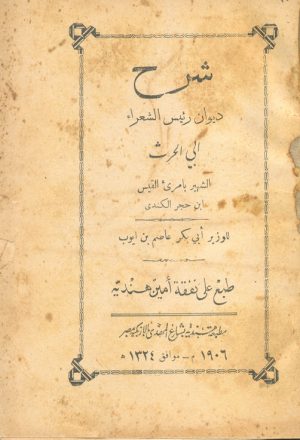 شرح
ديوان رئيس الشعراء
أبي الحرث
الشهير بامرئ القيس
ابن حجر الكندى
للوزير أبي بكر عاصم بن ايوب
طبع على نفقة أمين هنديه
مطبعة هندية بشارع المهدى بالازبكية بمصر
١٩٠٦ م — موافق ١٣٢٤ ه